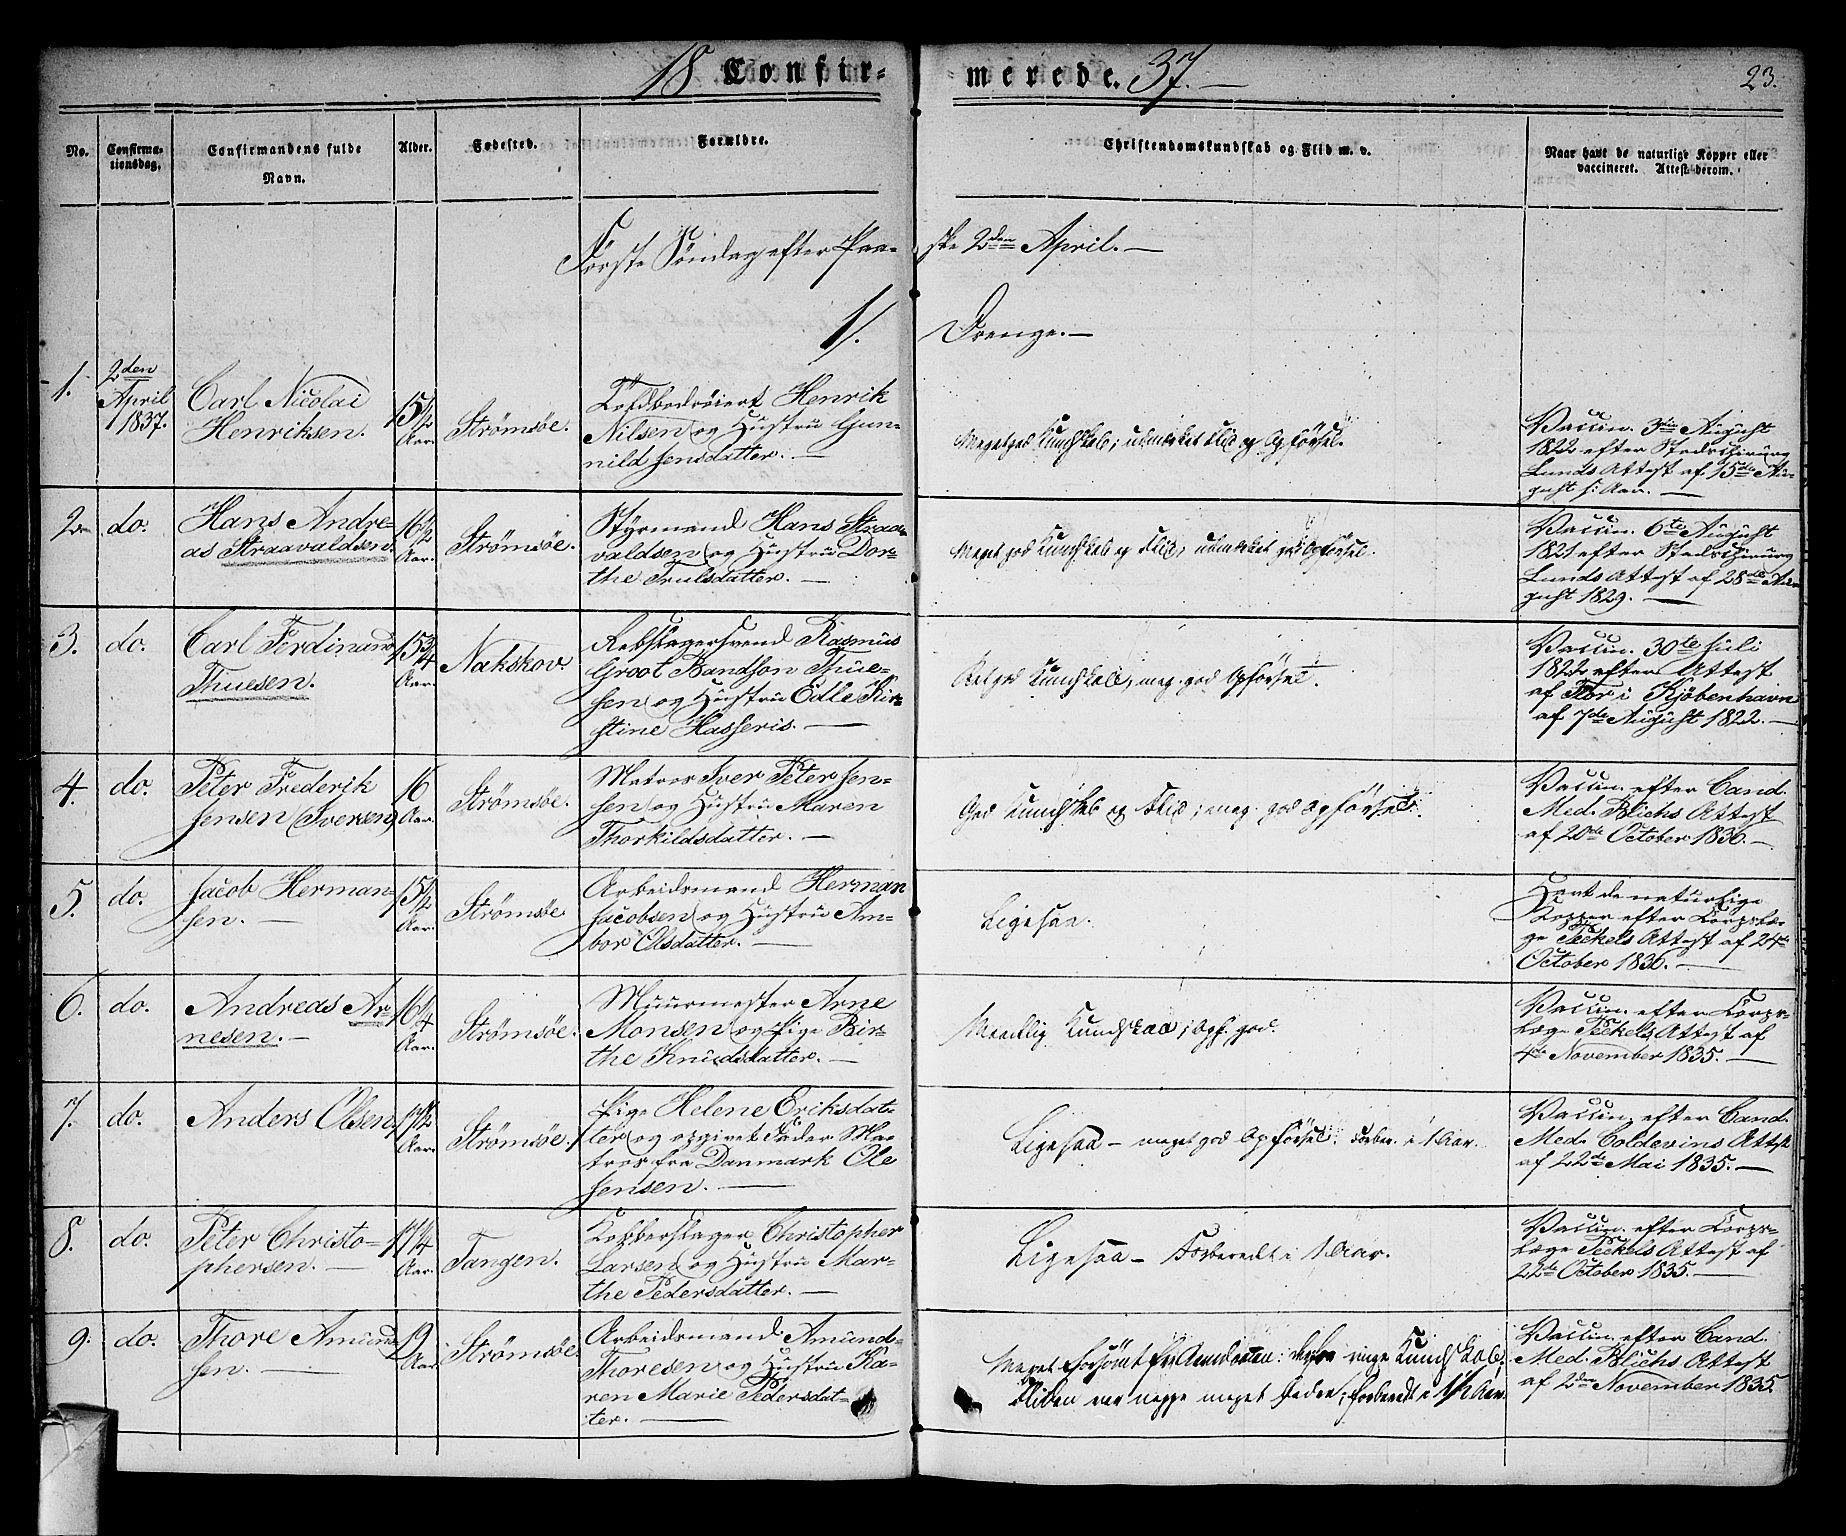 18 Confir- merede. 37.
23.
No.
Confirma-
tionsdag.
Confirmandens fulde
Navn.
Alder.
Fødested.
Forældre.
Christendomskundskab og Flid m. v.
Naar havt de naturlige Kopper eller
vaccineret. Attest derom.
Første Søndag efter Paa- ske 2den April. —
1/. Drenge. —
1.
2den
April
1837.
Carl Nicolai
Henriksen.
15 1/2
Aar.
Strömsöe.
Henrik
Nilsen og Hustru Gun-
nild Jensdatter. —
Meget god Kundskab; udmærket Flid og Opförsel.
Vaccin. 3die August
1822 efter Stadschirurg
Lunds Attest af 15de Au-
gust s: Aar. —
2.
do.
Hans Andre-
as Straavaldsen.
16 1/2
Aar.
Strömsöe.
Styrmand Hans Straa-
valdsen og Hustru Dor-
the Trulsdatter. —
Meget god Kundskab og Flid, udmærket god Opförsel.
Vaccin. 6te August
1821 efter Stadschirurg
Lunds Attest af 28de Au-
gust 1829. —
3.
do.
Carl Ferdinand
Thuesen.
15 3/4
Aar.
Nakskov.
Rebslagersvend Rasmus
Groot Bandson Thue-
sen og Hustru Edle Kir-
stine Hasseris. —
god Kundskab, meg. god Opförsel.
Vaccin. 30te Juli
1822 efter Attest
af Flor i Kjöbenhavn
af 7de August 1822. —
4.
do.
Peter Frederik
Jensen (Iversen)
16
Aar.
Strömsöe.
Matros Iver Peter Jen-
sen og Hustru Maren
Thorkildsdatter. —
God Kundskab og Flid; meg. god Opförsel.
Vaccin. efter Cand.
Med. Blichs Attest
af 20de October 1836. —
5.
do.
Jacob Herman-
sen. —
15 1/2
Aar.
Strömsöe
Arbeidsmand Herman
Jacobsen og Hustru Am-
bor Olsdatter. —
Ligesaa.
Havt de naturlige
Kopper efter Corpslæ-
ge Seckels Attest af 24de
October 1836. —
6.
do.
Andreas Ar-
nesen. —
16 1/4
Aar.
Strömsöe.
Muurmester Arne
Monsen og Pige Bir-
the Knudsdatter. —
Maadelig Kundskab; Opf. god.
Vaccin. efter Corps-
læge Seckels Attest af
4de November 1835. —
7.
do.
Anders Olsen
17 1/2
Aar.
Strömsöe.
Pige Helene Eriksdat-
ter og opgivet Fader Ma-
tros fra Danmark Ole
Jensen. —
Ligesaa — meget god Opförsel: Forber. i 1 Aar.
Vaccin. efter Cand.
Med. Coldevins Attest
af 22de Mai 1835. —
8.
do.
Peter Christo-
phersen. —
17 1/4
Aar.
Tangen.
Kobberslager Christopher
Larsen og Hustru Mar-
the Pedersdatter. —
Ligesaa — Forberedt i 1 Aar.
Vaccin. efter Corps-
læge Seckels Attest af
22de October 1835. —
9.
do.
Thore Amund-
sen. —
19
Aar
Strömsöe.
Arbeidsmand Amund
Thoresen og Hustru Ka-
ren Marie Pedersdat-
ter. —
Meget forsömt fra Barndommen: derfor ringe Kundskab.
Fliden var neppe meget; Forberedt i 1 1/2 Aar.
Vaccin. efter Cand.
Med. Blichs Attest
af 2den November 1835.